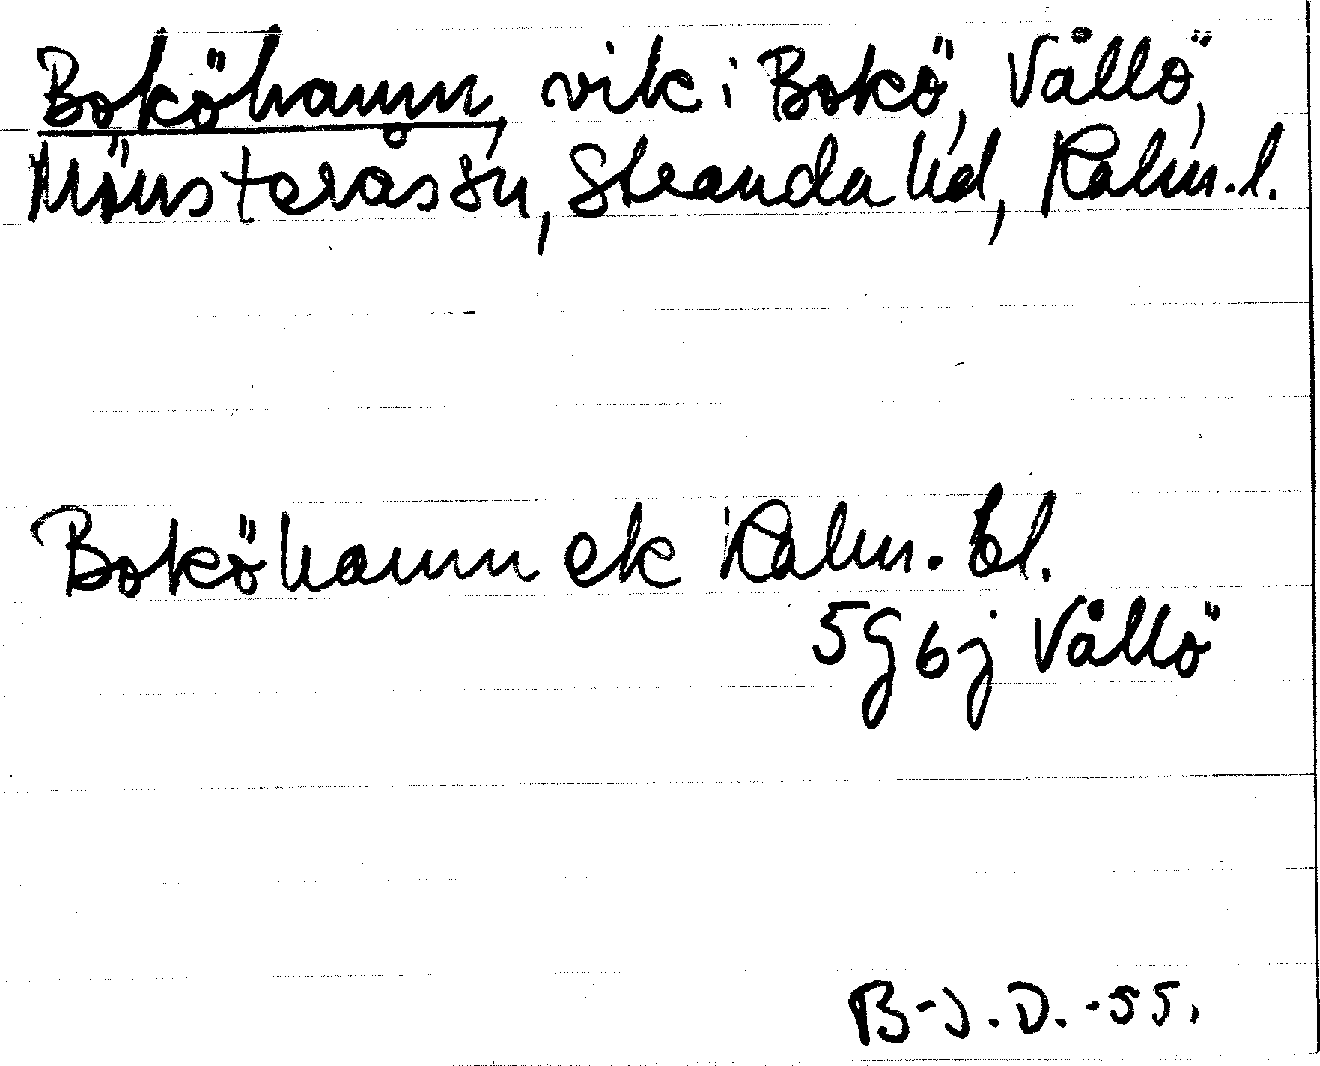 Boköhamn, vik i Bokö, Vållö,
Mönsterås sn, Stranda hd, Kalm. l.
Boköhamn ek Kalm. bl.
5g6j Vållö
B-J.D.-55.